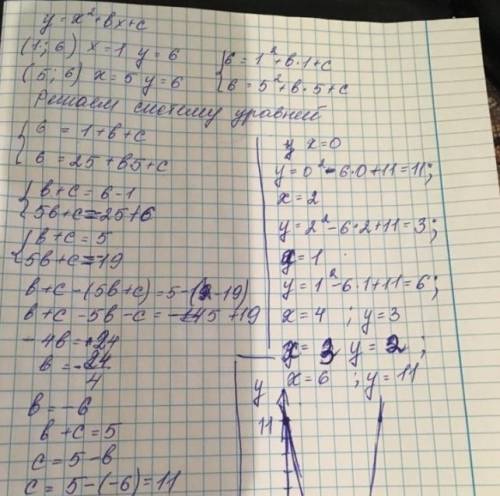 y = x² + bx + c
(1; 6) x = 1 y = 6
(5; 6) x = 5 y = 6
6 = 1² + b·1 + c
6 = 5² + b·5 + c
Решаем систему уравней
6 = 1 + b + c
6 = 25 + b5 + c
b + c = 6 - 1
5b + c = 25 + 6
b + c = 5
5b + c = -19
b + c - (5b + c) = 5 - (-19)
b + c - 5b - c = 5 + 19
-4b = 24
b = -24/4
b = -6
b + c = 5
c = 5 - b
c = 5 - (-6) = 11
x = 0
y = 0² - 6·0 + 11 = 11;
x = 2
y = 2² - 6·2 + 11 = 3;
x = 1
y = 1² - 6·1 + 11 = 6;
x = 4 ; y = 3
x = 3 y = 2 ;
x = 6 ; y = 11
y
11